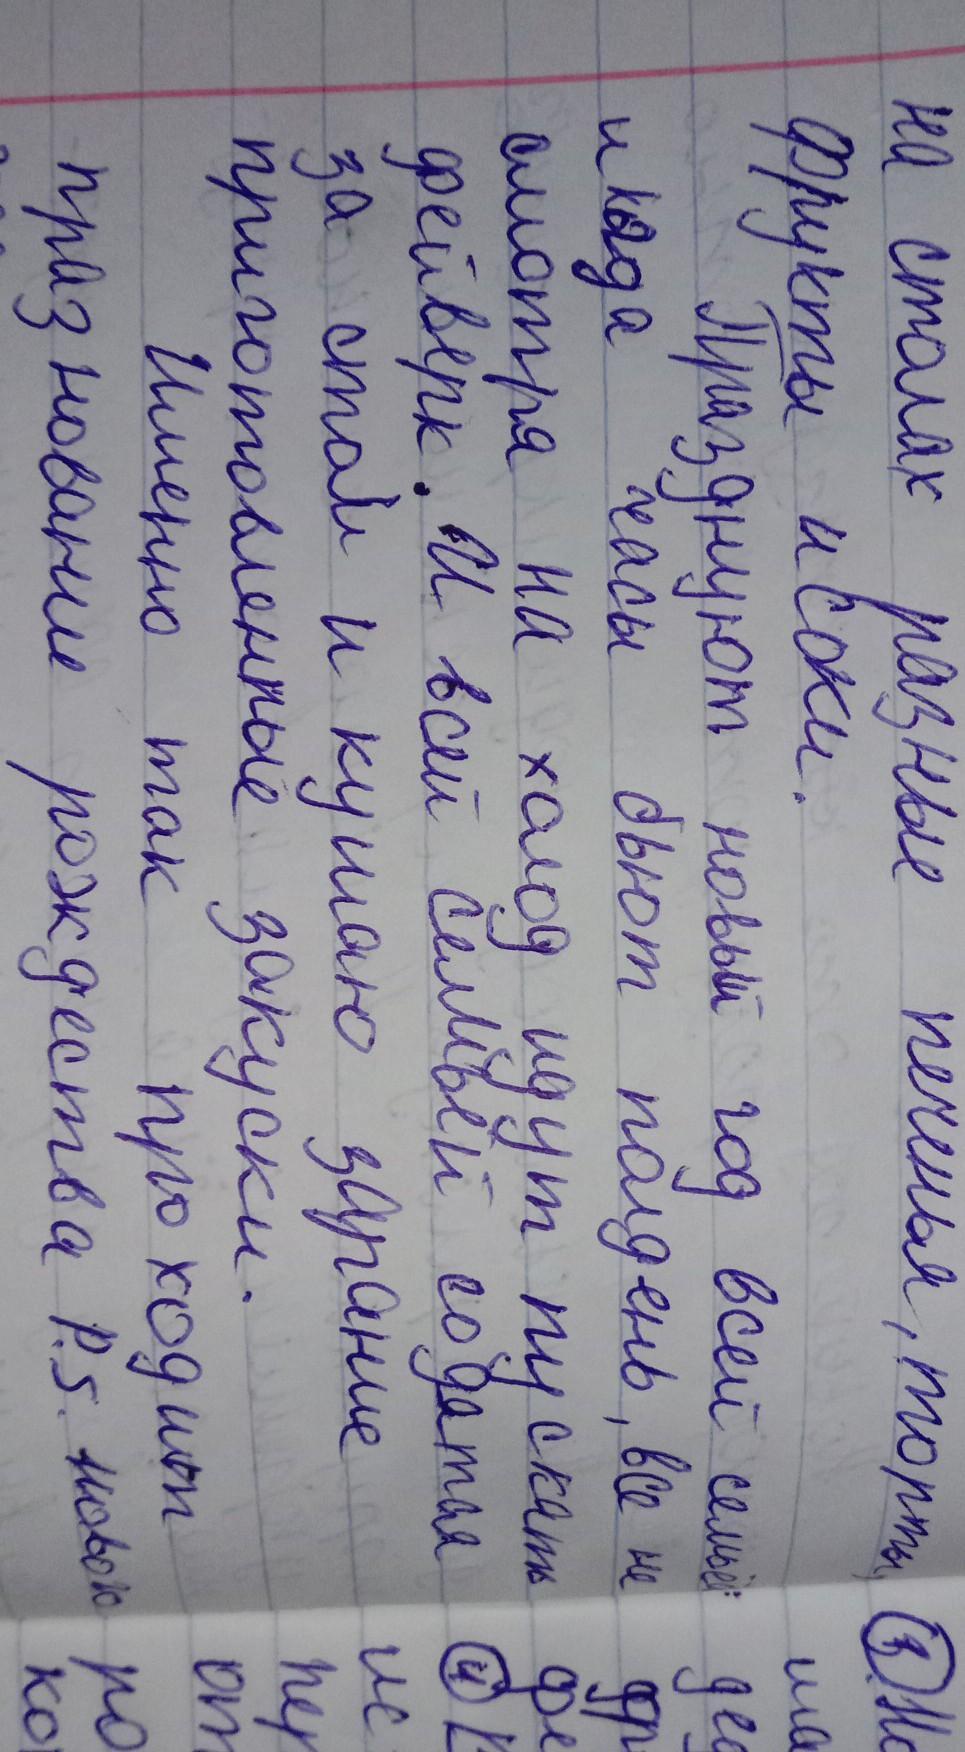 на столах разные печенья, торты,
фрукты и соки.
Праздничют новый год всей семьёй
и када часы бьют полдень, все не
смотря на холод идут пускать
фейверк. И всей семьёй содятся
за стол и кушаю зарание
приготовленные закуски.
Именно так проходит
празнование рождества P.S. новок
3.
4
ис
пер
от
ро
ко